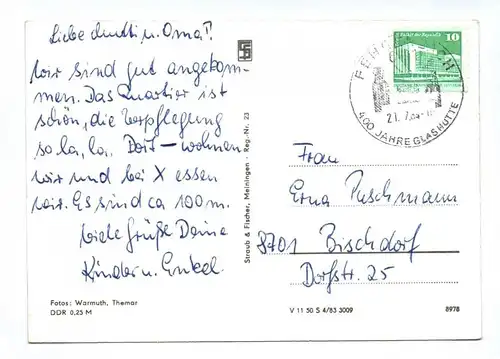 Liebe Mutti u. Oma!
Wir sind gut angekom-
men. Das Quartier ist
schön, die Verpflegung
so la, la. Dort – wohnen
wir und bei X essen
wir. Es sind ca 100 m.
Viele Grüße Deine
Kinder u. Enkel.
Fotos: Warmuth, Themar
DDR 0,25 M
Straub & Fischer, Meiningen - Reg.-Nr. 23
10
400 JAHRE GLASHÜTTE
Frau
Erna Puschmann
8701 Bischdorf
Dorfstr. 25
V 11 50 S 4/83 3009
8978